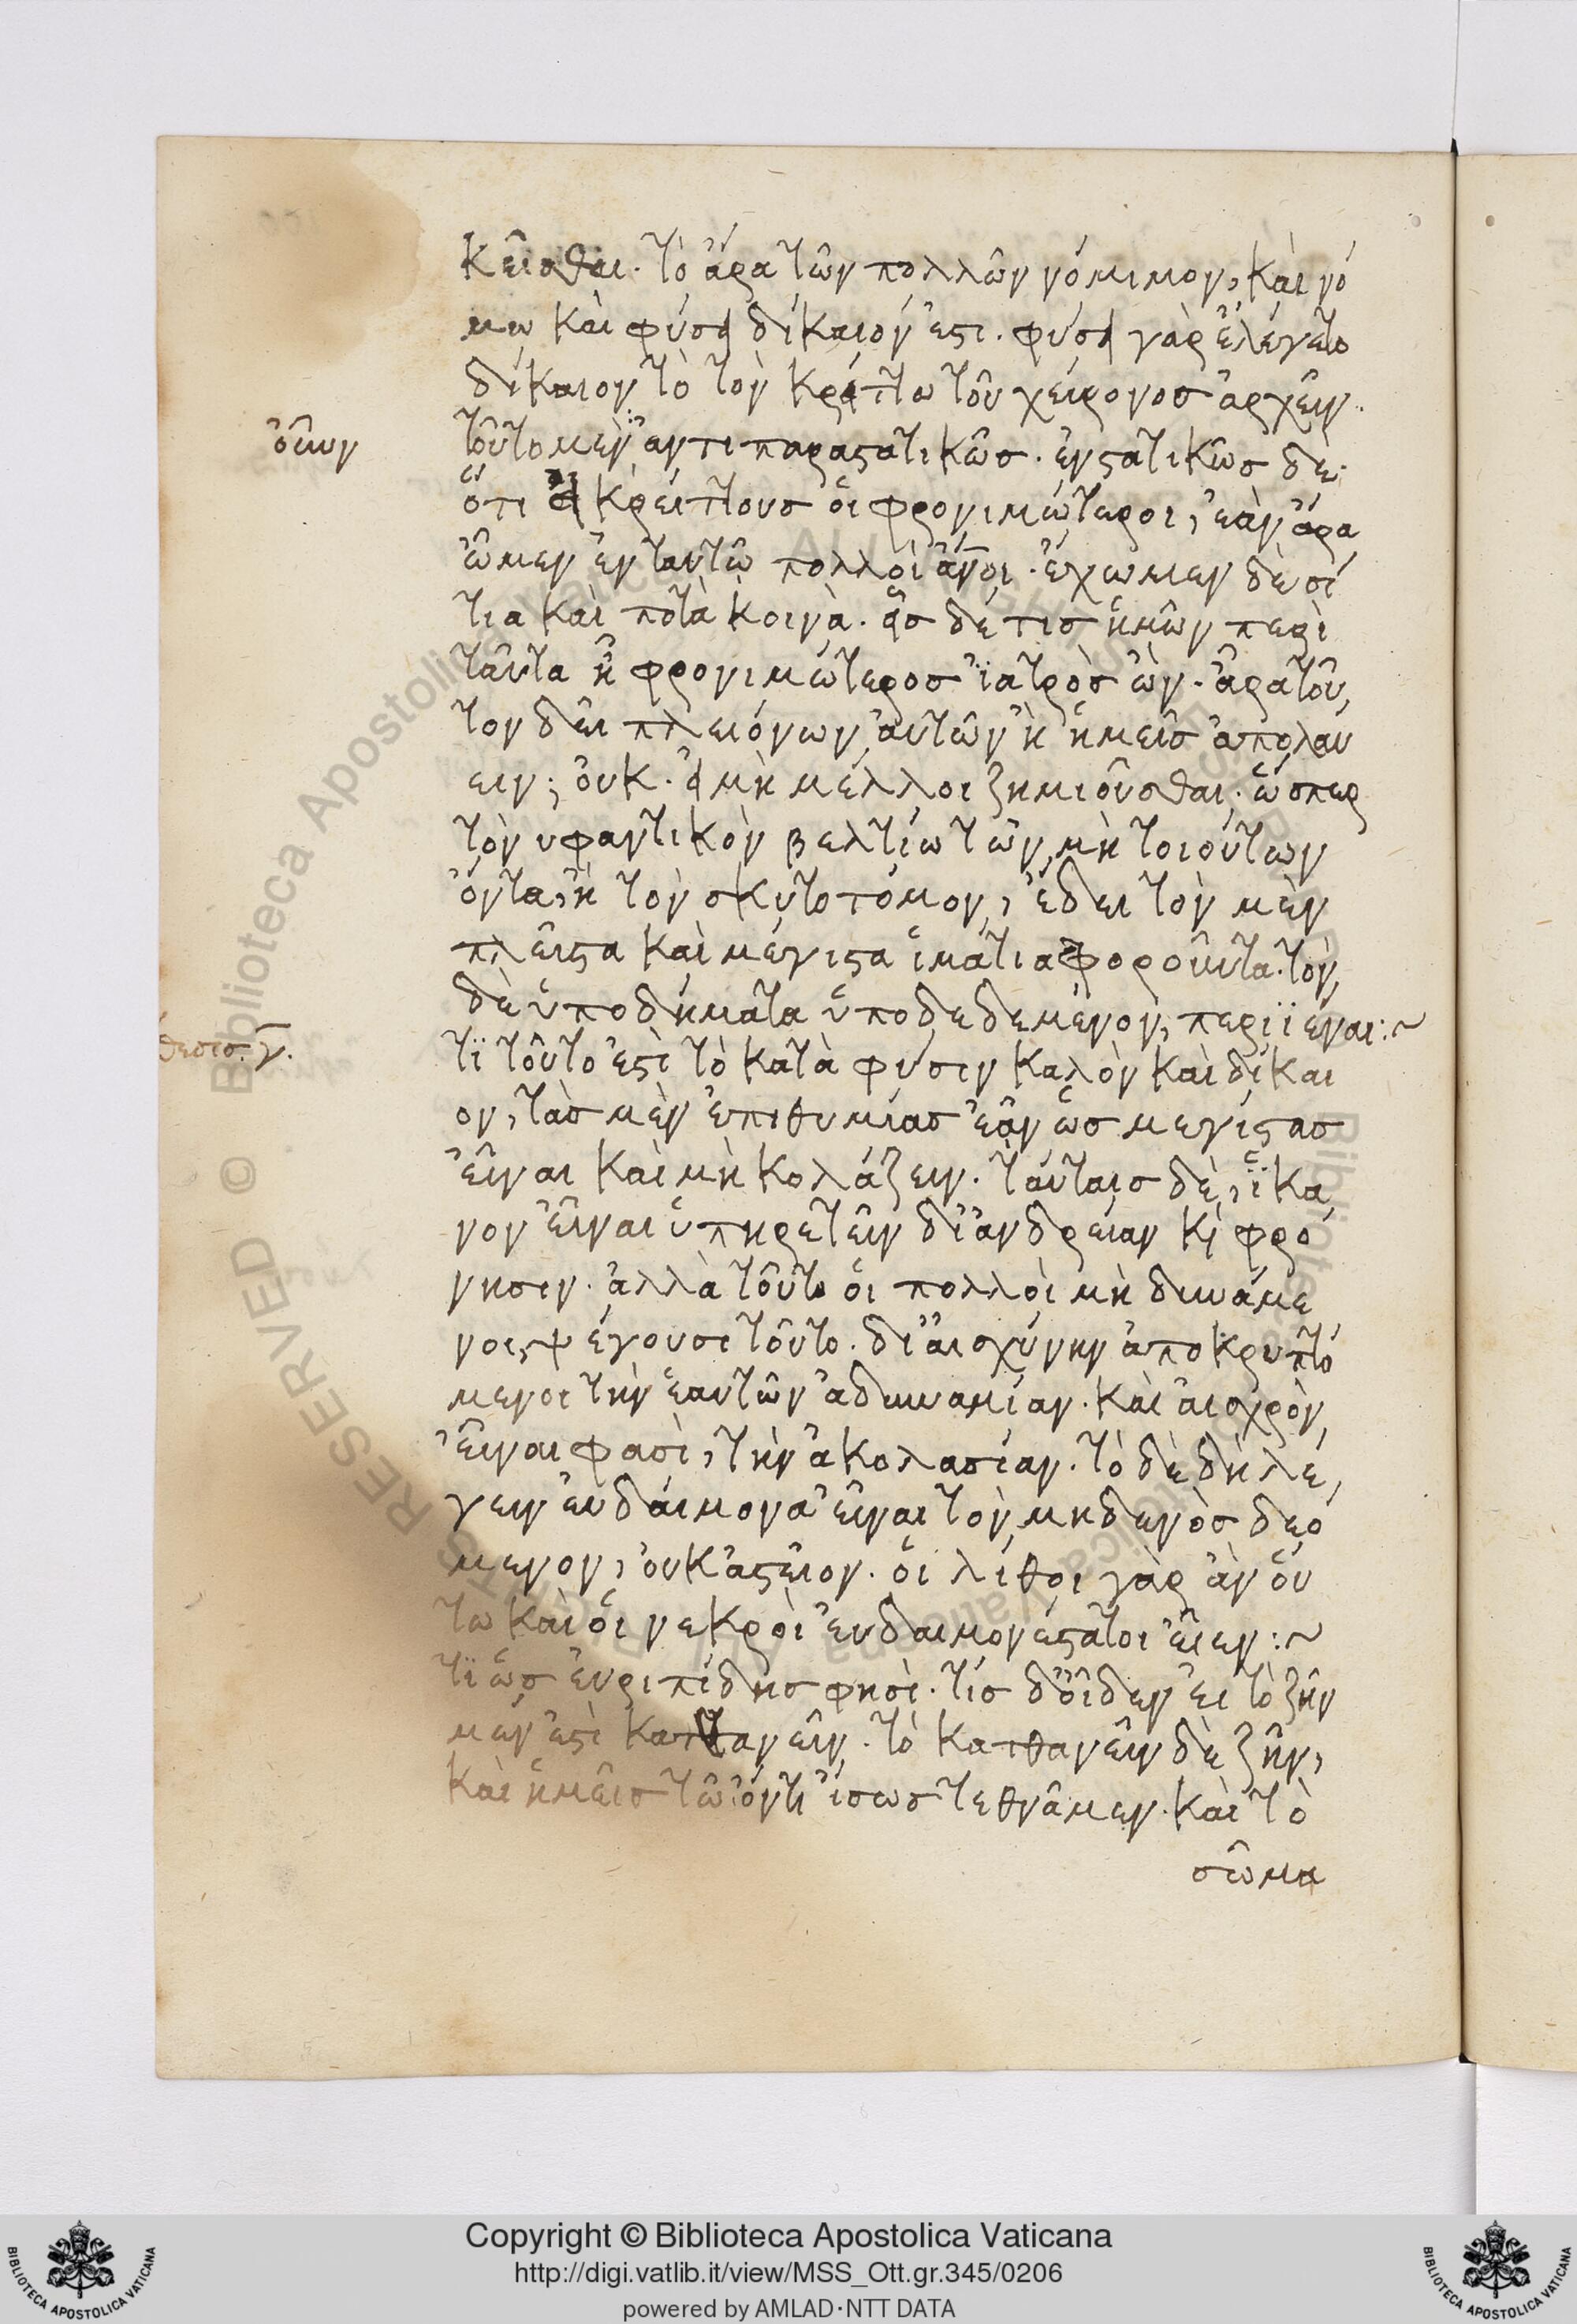 κεῖσθαι. τὸ ἄρα τῶν πολλῶν νόμιμον, καὶ νό
μω καὶ φύσει δίκαιόν ἐστι. φύσει γὰρ ἐλέγετο
δίκαιον τὸ τὸν κρείττω τοῦ χείρονοσ ἄρχειν.
ὁ οὖν
τοῦτο μὲν ἀντιπαραστατικῶσ. ἐνστατικῶσ δὲ.
ὅτι εἰ κρείττουσ οἱ φρονιμώτεροι, ἐὰν ἄρα
ὦμεν ἐν ταυτῶ πολλοὶ ἄνοι. ἔχωμεν δὲ σί
τια καὶ ποτὰ κοινὰ. εἷσ δέ τισ ἡμῶν περὶ
ταῦτα ἦ φρονιμώτεροσ ἰατρὸσ ὢν. ἆρα τοῦ
τον δεῖ πλειόνων αὐτῶν ἢ ἡμεῖσ ἀπολαύ
ειν; οὐκ. εἰ μὴ μέλλοι ζημιοῦσθαι. ὥσπερ
τὸν ὑφαντικὸν βελτίω τῶν μὴ τοιούτων
ὄντα, ἢ τὸν σκυτοτόμον, ἔδει τὸν μὲν
πλεῖστα καὶ μέγιστα ἱμάτια φοροῦντα. τὸν
δὲ ὑποδήματα ὑποδεδεμένον, περιϊέναι:~
θεσισ. γ.
τϊ τοῦτο ἐστὶ τὸ κατὰ φύσιν καλὸν καὶ δίκαι
ον, τὰσ μὲν ἐπιθυμίασ ἐᾶν ὡσ μεγίστασ
εἶναι καὶ μὴ κολάζειν. ταύταισ δὲ, ἱκα
νον εἶναι ὑπηρετεῖν δι ἀνδρείαν κὶ φρό
νησιν. ἀλλὰ τοῦτο οἱ πολλοὶ μὴ δυνάμε
νοι, ψέγουσι τοῦτο. δι αἰσχύνην ἀποκρυπτό
μενοι τὴν ἑαυτῶν ἀδυναμίαν. καὶ αἰσχρὸν
εἶναι φασὶ, τὴν ἀκολασίαν. τὸ δὲ δὴ λέ
γειν εὐδαίμονα εἶναι τὸν μηδενὸσ δεό
μενον, οὐκ ἀστεῖον. οἱ λίθοι γὰρ ἂν οὕ
τω καὶ οἱ νεκροὶ εὐδαιμονέστατοι εἶεν:~
τϊ ὡσ εὐριπίδησ φησὶ. τίσ δ οἶδεν εἰ τὸ ζῆν
μέν ἐστὶ κατθανεῖν. τὸ κατθανεῖν δὲ ζῆν,
καὶ ἡμεῖσ τῶ ὄντι ἴσωσ τεθνᾶμεν. καὶ τὸ
σῶμα
Copyright © Biblioteca Apostolica Vaticana
http://digi.vatlib.it/view/MSS_Ott.gr.345/0206
powered by AMLAD·NTT DATA
BIBLIOTECA APOSTOLICA VATICANA
BIBLIOTECA APOSTOLICA VATICANA